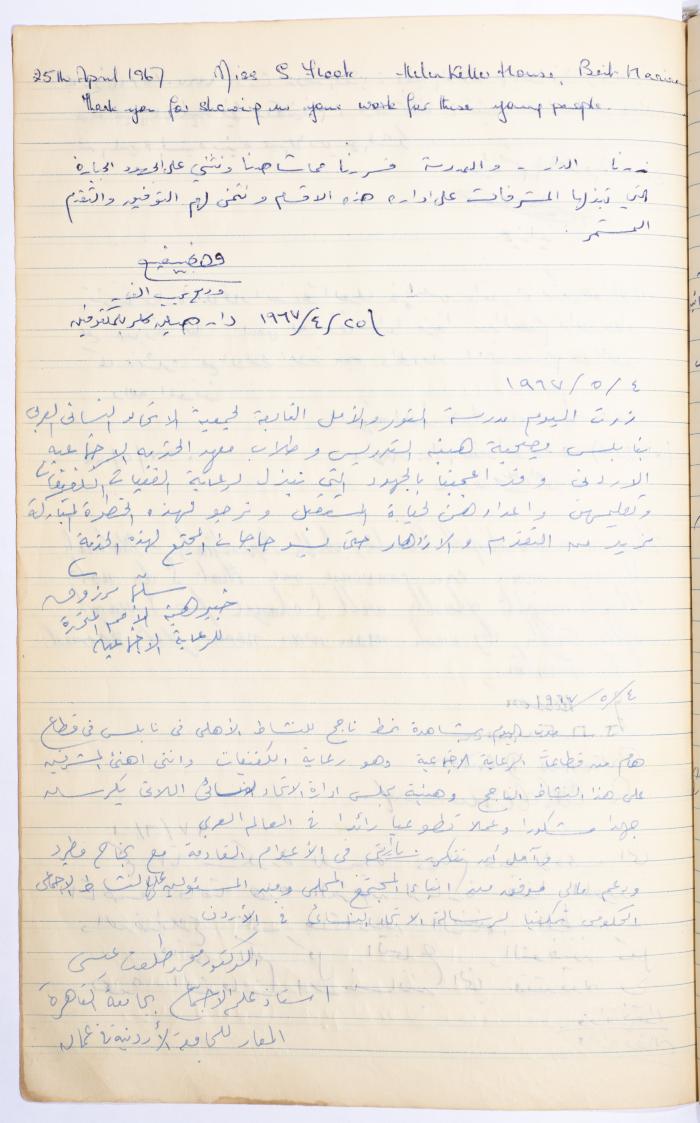 25th April 1967 Miss S Flook Helen Keller House, Beit Hanina
Thank you for showing us your work for these young people.
زرنا الدار - والمدرسة فسررنا مما شاهدنا ونثني على الجهود الجبارة
التي تبذلها المشرفات على ادارة هذه الاقسام ونتمنى لهم التوفيق والتقدم
المستمر.
٢٥/٤/١٩٦٧ دار هيلين كلر للمكفوفين
٤/٥/١٩٦٧
زرت اليوم مدرسة النور والأمل التابعة لجمعية الاتحاد النسائي العربي
بنابلس وبصحبة هيئة التدريس وطلاب معهد الخدمة الاجتماعية
الاردني وقد اعجبنا بالجهود التي تبذل لرعاية الفتيات الكفيفات
وتعليمهن واعدادهن لحياة المستقبل ونرجو لهذه الخطوة المباركة
مزيد من التقدم والازدهار حتى تسد حاجات المجتمع لهذه الخدمة
خبير هيئة الأمم المتحدة
للرعاية الاجتماعية
٤/٥/
اليوم بمشاهدة نمط ناجح للنشاط الأهلي في نابلس في قطاع
هام من قطاعات الرعاية الاجتماعية وهو رعاية الكفيفات وانني اهنئ المشرفين
على هذا النشاط الناجح وهيئة مجلس ادارة الاتحاد النسائي اللاتي يكرسن
جهدا مشكورا وعملا تطوعيا رائدا في العالم العربي
وآمل أن في الأعوام القادمة مع نجاح مطرد
ودعم مالي من المجتمع المحلي ومن المسئولين على النشاط الاجتماعي
الحكومي لرسالة الاتحاد النسائي في الأردن
الدكتور محمد طلعت عيسى
استاذ علم الاجتماع بجامعة القاهرة
المعار للجامعة الأردنية في عمان